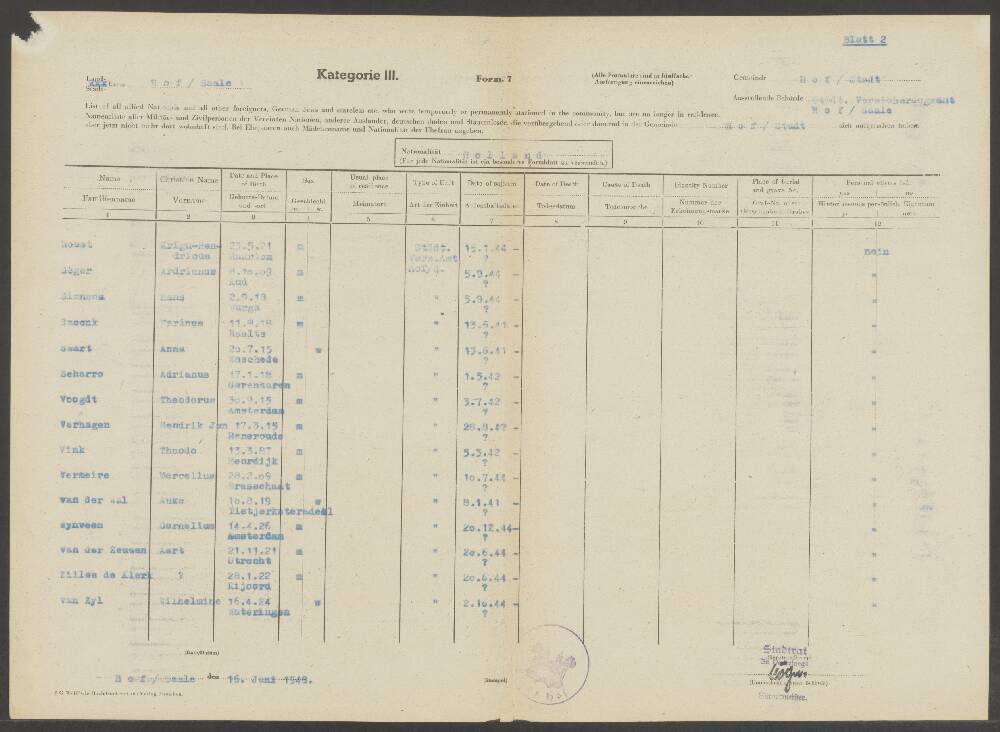 Blatt 2
Kategorie III.
Form. 7
(Alle Formulare sind in fünffacher Ausfertigung einzureichen)
Hof / Saale
Gemeinde Hof / Stadt
Ausstellende Behörde Städt. Versicherungsamt
Hof / Saale
List of all allied Nationals and all other foreigners, German Jews and stateless etc. who were temporarily or permanently stationed in the community, but are no longer in residence.
Namensliste aller Militär- und Zivilpersonen der Vereinten Nationen, anderer Ausländer, deutschen Juden und Staatenlosen, die vorübergehend oder dauernd in der Gemeinde Hof / Stadt sich aufgehalten haben,
aber jetzt nicht mehr dort wohnhaft sind. Bei Ehefrauen auch Mädchenname und Nationalität der Ehefrau angeben.
Nationalität Holland
(Für jede Nationalität ist ein besonderes Formblatt zu verwenden)
Name Christian Name Date and Place of Birth Sex Usual place of residence Type of Unit Date of sojourn Date of Death Cause of Death Identity Number Place of burial and grave No. Personal effects
Familienname Vorname Geburts-Datum und -ort Geschlecht m. w. Heimatort Art der Einheit Aufenthaltsdatum Todesdatum Todesursache Nummer der Erkennungsmarke
1 2 3 4 5 6 7 8 9 10 11 12
23.5.21 m Städt. 15.1.44 - nein
dricus Vers.Amt ?
Söger Ardrianus 8.10.09 m Hof/S. 5.9.44 - "
?
Siemens Hans 2.9.18 m " 5.9.44 - "
?
Marinus 11.8.18 m " 13.6.41 - "
?
Swart Anna 20.7.15 w " 13.6.41 - "
Enschede ?
Scharro Adrianus 17.1.18 m " 1.5.42 - "
?
Voogdt Theodorus 30.9.15 m " 3.7.42 - "
Amsterdam ?
Verhagen Hendrik Jan 17.3.15 m " 28.8.42 - "
?
Vink Theodo 13.3.87 m " 5.3.42 - "
?
Vermeire Marcellus 28.2.09 m " 10.7.44 - "
Brasschaat ?
van der Wal Anke 10.8.19 w " 8.1.41 - "
Tietjerksteradeel ?
Wynveen Cornelius 14.4.26 m " 20.12.44 - "
Amsterdam ?
van der Zeuwen Aart 21.11.21 m " 20.6.44 - "
Utrecht ?
Zilles de Klerk ? 28.1.22 m " 20.6.44 - "
?
van Zyl Wilhelmine 16.4.24 w " 2.10.44 - "
Wateringen ?
(Dat./Datum)
Hof/Saale den 16. Juni 1948.
(Stempel)
Stadtrat
Bürgermeister.